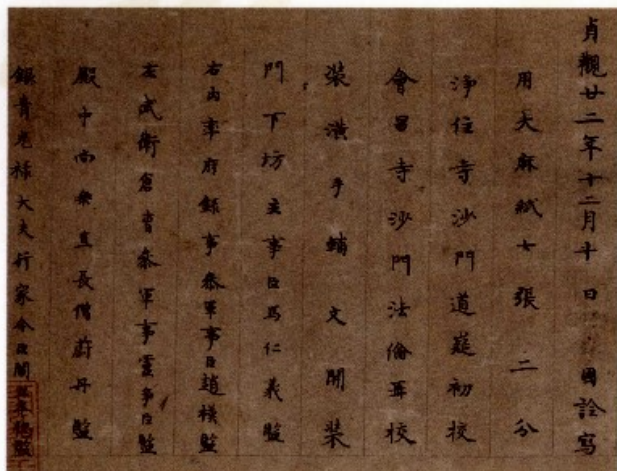 貞觀廿二年十二月十日 國詮寫
用大麻紙七張二分
淨住寺沙門道嶷初校
會昌寺沙門法倫再校
裝潢手輔文開裝
門下坊主事臣馮仁義監
右內率府錄事參軍事臣趙模監
左武衛倉曹參軍事臣監
殿中尚乘直長監
銀青光祿大夫行家令臣閻